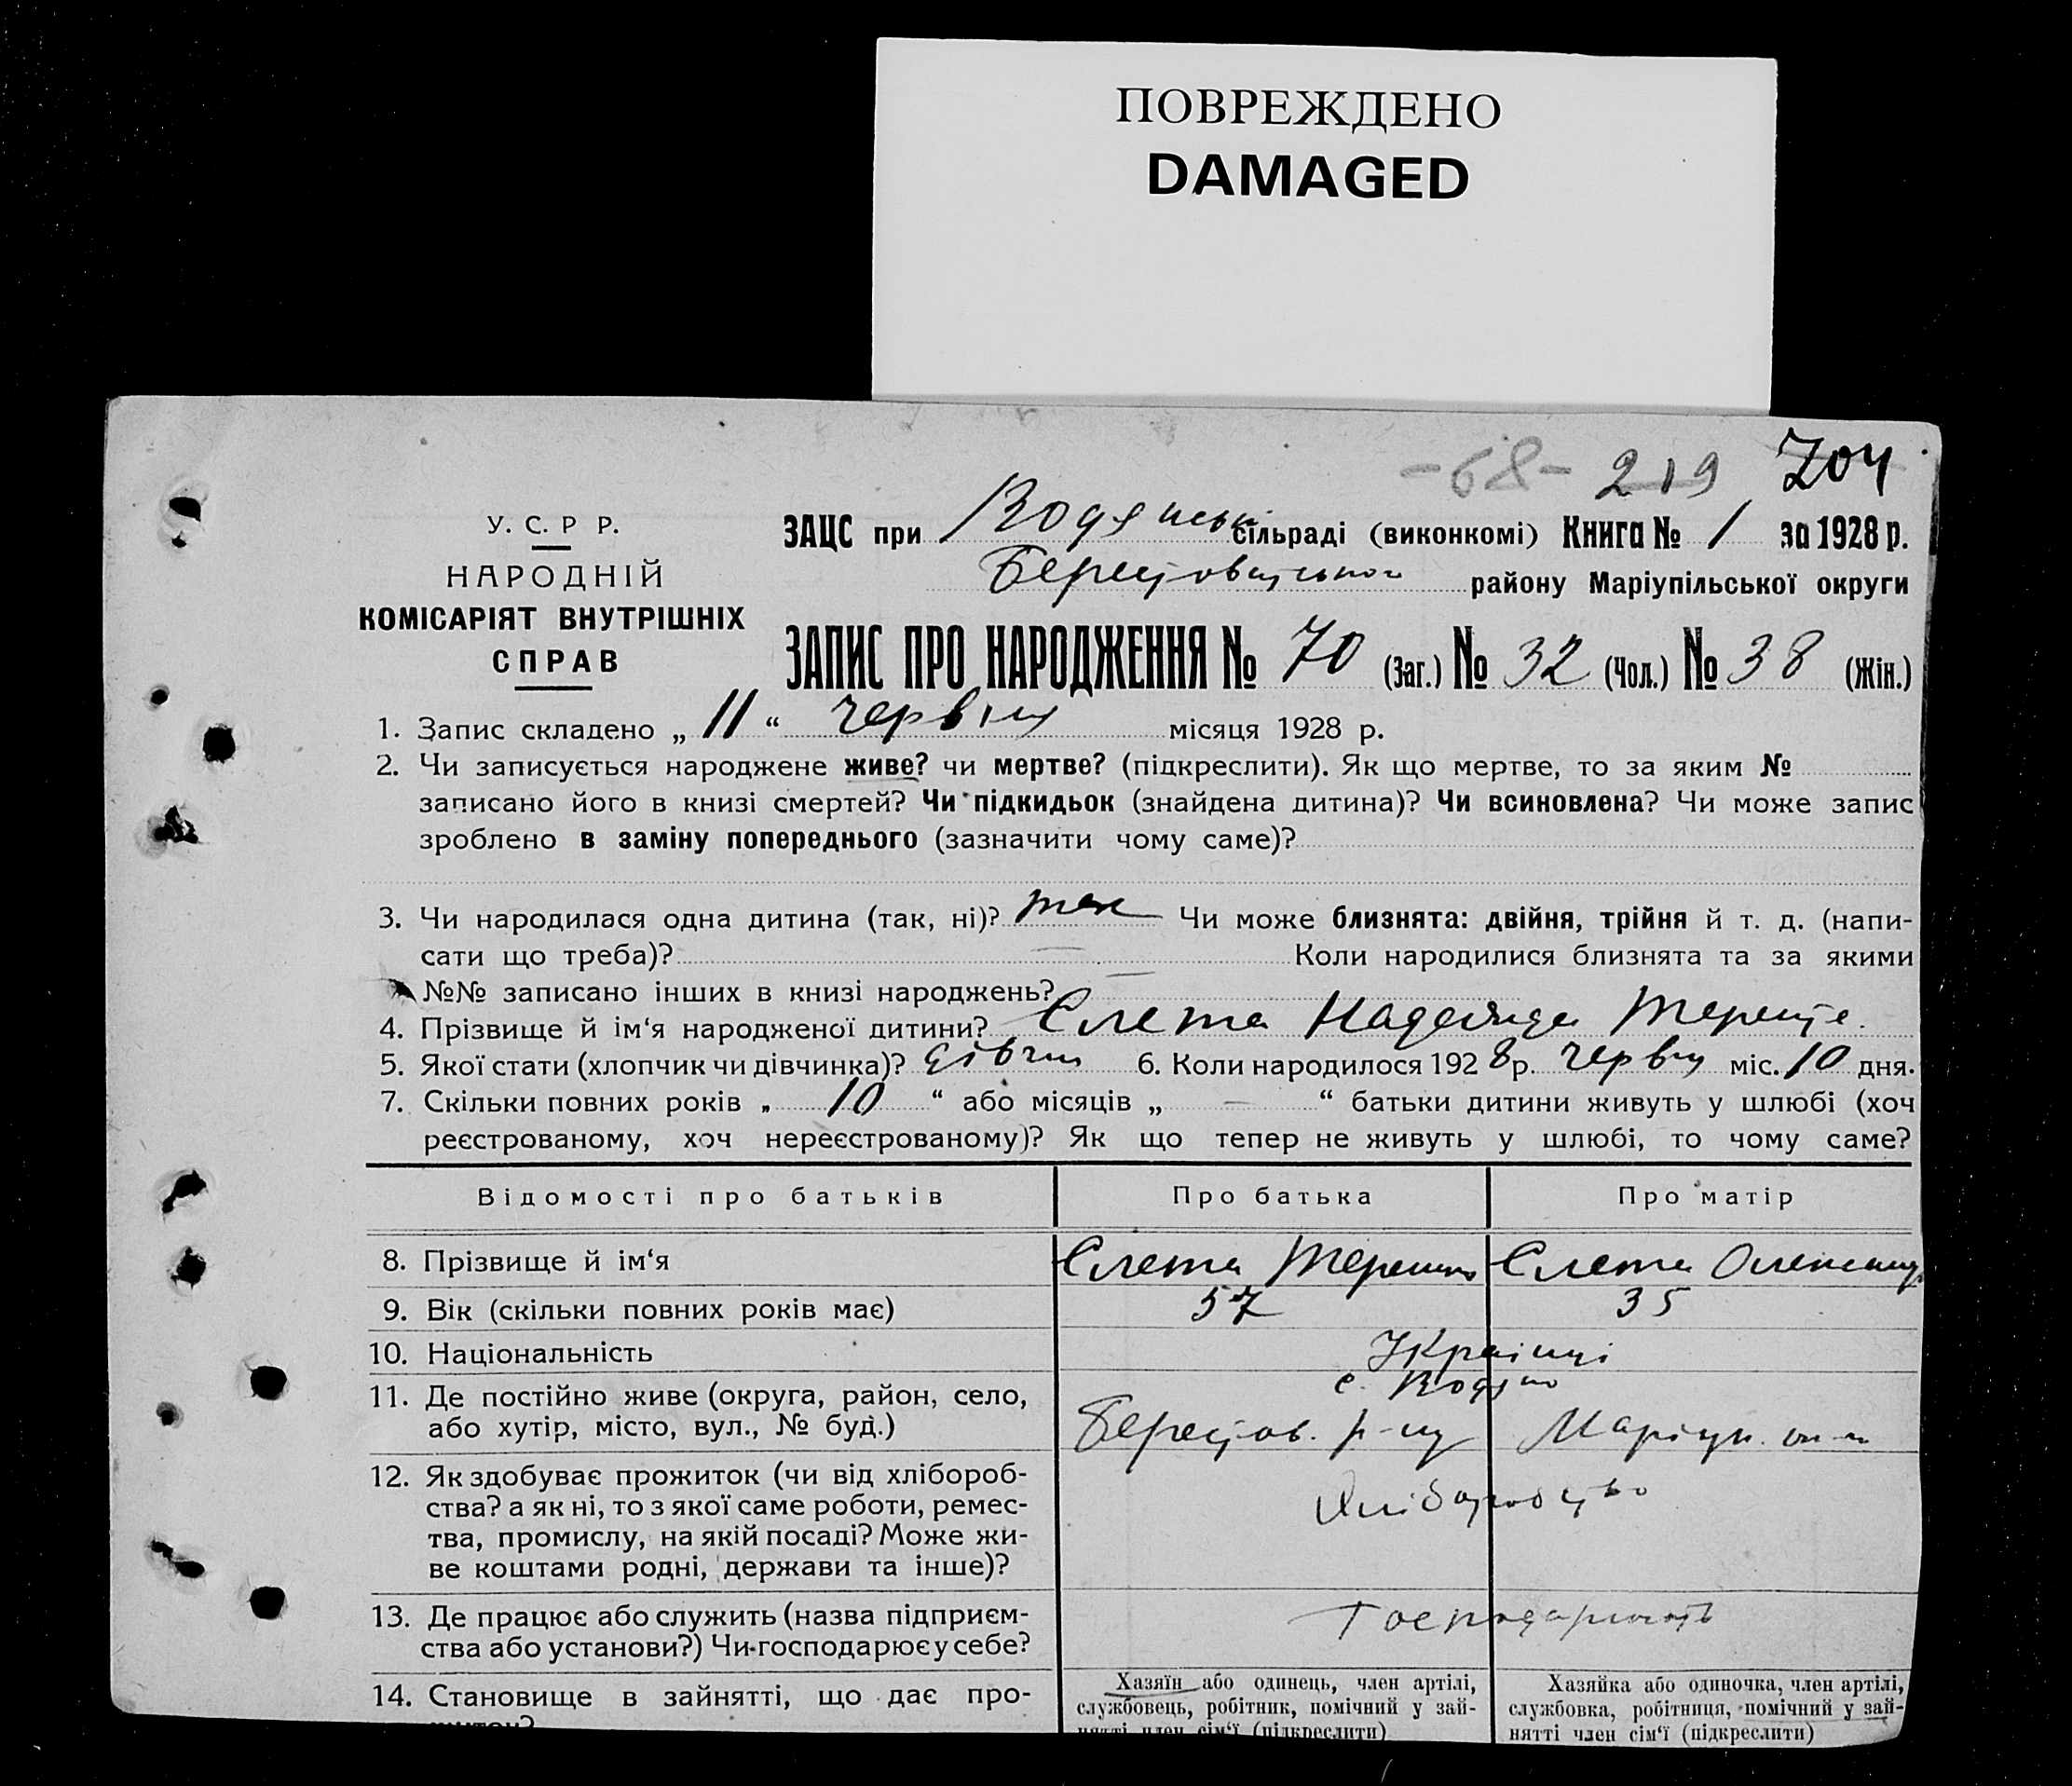 ПОВРЕЖДЕНО
DAMAGED
-68- 219 704
У. С. Р Р.
НАРОДНІЙ
КОМІСАРІЯТ ВНУТРІШНІХ
СПРАВ
ЗАЦС при Водянські сільраді (виконкомі) Книга № 1 за 1928 р.
району Маріупільської округи
ЗАПИС ПРО НАРОДЖЕННЯ № 70 (Заг.) № 32 (Чол.) № 38 (Жін.)
1. Запис складено „ 11 “ червня місяця 1928 р.
2. Чи записується народжене живе? чи мертве? (підкреслити). Як що мертве, то за яким №
записано його в книзі смертей? Чи підкидьок (знайдена дитина)? Чи всиновлена? Чи може запис
зроблено в заміну попереднього (зазначити чому саме)?
3. Чи народилася одна дитина (так, ні)? так Чи може близнята: двійня, трійня й т. д. (напи-
сати що треба)? — Коли народилися близнята та за якими
№№ записано інших в книзі народжень? —
4. Прізвище й ім‘я народженої дитини? Слета Надежда
5. Якої стати (хлопчик чи дівчинка)? дівчин 6. Коли народилося 1928 р. червня міс. 10 дня.
7. Скільки повних років „ 10 “ або місяців „ — “ батьки дитини живуть у шлюбі (хоч
реєстрованому, хоч нереєстрованому)? Як що тепер не живуть у шлюбі, то чому саме?
Відомості про батьків Про батька Про матір
8. Прізвище й ім‘я Слета Слета
9. Вік (скільки повних років має) 57 35
10. Національність Українці
11. Де постійно живе (округа, район, село,
або хутір, місто, вул., № буд.)
с. Водяно
Берестов. р-ну
12. Як здобуває прожиток (чи від хлібороб-
ства? а як ні, то з якої саме роботи, ремес-
тва, промислу, на якій посаді? Може жи-
ве коштами родні, держави та інше)?
Хліборобство
13. Де працює або служить (назва підприєм-
ства або установи?) Чи господарює у себе?
14. Становище в зайнятті, що дає про-
житок?
Хазяїн або одинець, член артілі,
службовець, робітник, помічний у зай-
нятті член сім‘ї (підкреслити)
Хазяйка або одиночка, член артілі,
службовка, робітниця, помічний у зай-
нятті член сім‘ї (підкреслити)